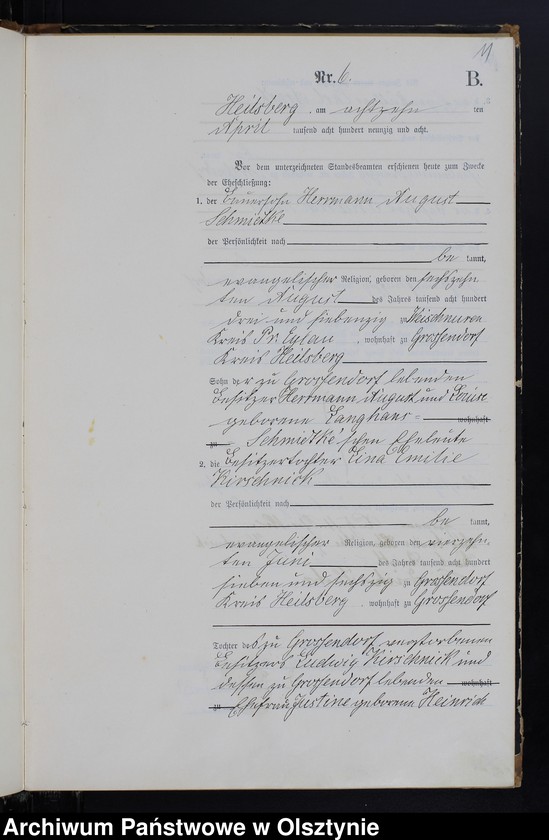 11
Nr. 6.
B.
Heilsberg, am achtzehn ten
April tausend acht hundert neunzig und acht.
Vor dem unterzeichneten Standesbeamten erschienen heute zum Zwecke
der Eheschließung:
1. der Herrmann August
Schmietke
der Persönlichkeit nach
be kannt,
evangelischer Religion, geboren den sechszehn
ten August des Jahres tausend acht hundert
drei und siebenzig zu Weischnuren
Kreis Pr. Eylau, wohnhaft zu Grossendorf
Kreis Heilsberg
Sohn der zu Grossendorf lebenden
Besitzer Herrmann August und Louise
geborene Langhans = wohnhaft
zu Schmietke'schen Eheleute
2. die Besitzertochter Lina Emilie
Kirschnick
der Persönlichkeit nach
be kannt,
evangelischer Religion, geboren den vierzehn
ten Juni des Jahres tausend acht hundert
sieben und sechszig zu Grossendorf
Kreis Heilsberg, wohnhaft zu Grossendorf
Tochter des zu Grossendorf verstorbenen
Besitzers Ludwig Kirschnick und
dessen zu Grossendorf lebenden wohnhaft
zu Ehefrau Justine geborene Heinrich
Archiwum Państwowe w Olsztynie